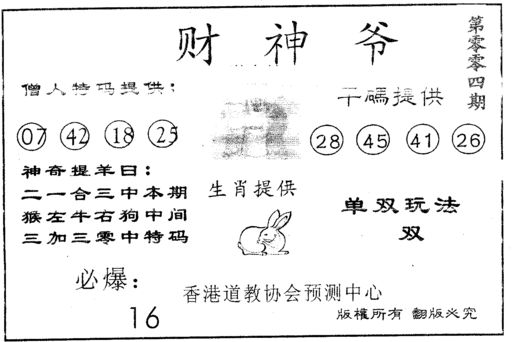 财神爷
第零零四期
僧人特码提供：
07 42 18 25
干碼提供
28 45 41 26
神奇提羊曰：
二一合三中本期
猴左牛右狗中间
三加三零中特码
生肖提供
单双玩法
双
必爆：
16
香港道教协会预测中心
版權所有 翻版必究